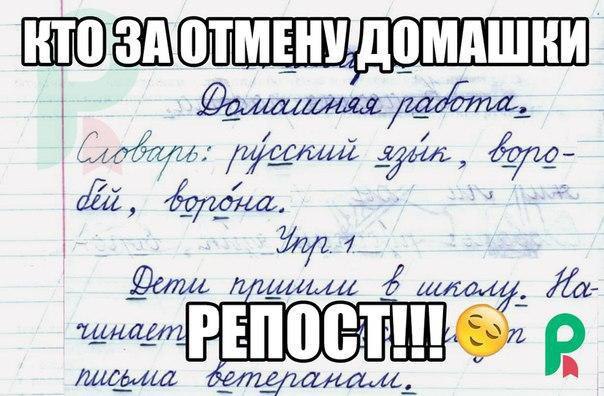 КТО ЗА ОТМЕНУ ДОМАШКИ
Домашняя работа.
Словарь: русский язык, воро-
бей, ворона.
Упр. 1
Дети пришли в школу. На-
чинает
РЕПОСТ!!!
письма ветеранам.